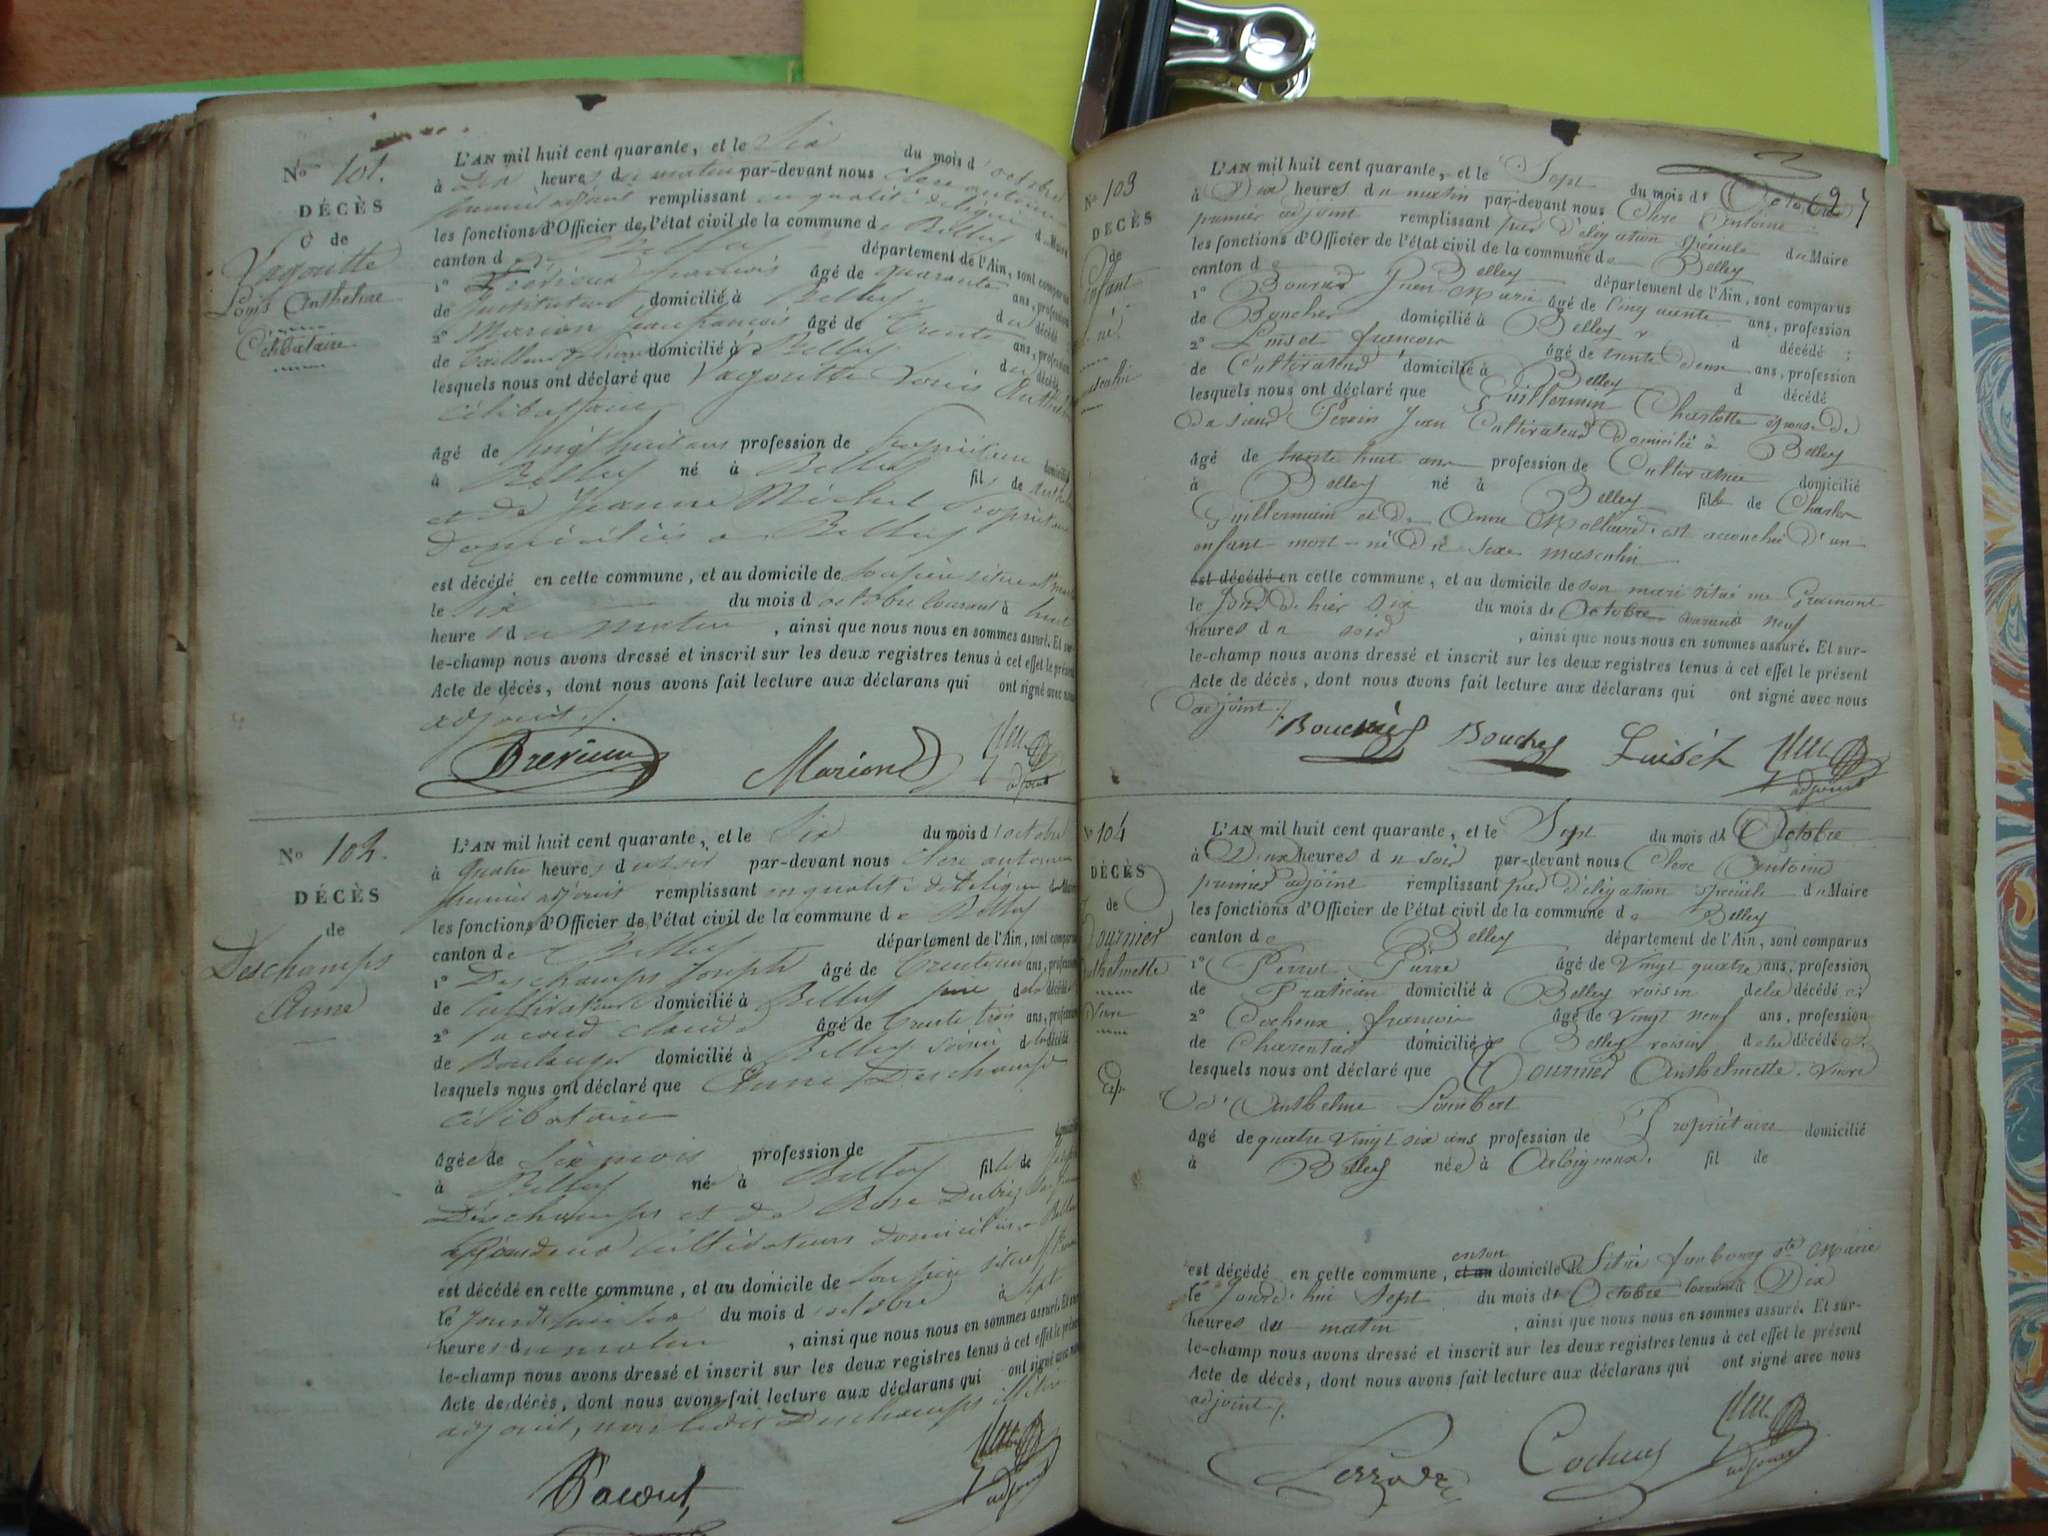 No 101.
DÉCÈS
de
Vagouitte
Louis Anthelme
Célibataire
L'AN mil huit cent quarante, et le Six du mois d'octobre
à dix heures du matin par-devant nous Clerc antoine
premier adjoint remplissant en qualité de délégué du Maire
les fonctions d'Officier de l'état civil de la commune de Belley
canton de Belley département de l'Ain, sont comparus
1° françois âgé de quarante ans, profession
de Instituteur domicilié à Belley du décédé ;
2° Marion Jean françois âgé de trente ans, profession
de tailleur de pierre domicilié à Belley du décédé
lesquels nous ont déclaré que Vagouitte Louis Anthelme
célibataire
âgé de vingt huit ans profession de Propriétaire domicilié
à Belley né à Belley fils de
et de Jeanne Michel Propriétaires
domiciliés à Belley
est décédé en cette commune, et au domicile de son père situé
le Six du mois d'octobre courant à huit
heures du matin, ainsi que nous nous en sommes assuré. Et sur-
le-champ nous avons dressé et inscrit sur les deux registres tenus à cet effet le présent
Acte de décès, dont nous avons fait lecture aux déclarans qui ont signé avec nous
adjoint ./.
Marion
adjoint
No 102.
DÉCÈS
de
Deschamps
Anne
L'AN mil huit cent quarante, et le Six du mois d'octobre
à quatre heures du soir par-devant nous Clerc antoine
premier adjoint remplissant en qualité de délégué du Maire
les fonctions d'Officier de l'état civil de la commune de Belley
canton de Belley département de l'Ain, sont comparus
1° Deschamps Joseph âgé de trente ans, profession
de Cultivateur domicilié à Belley père de la décédée
2° Pacoud claude âgé de trente trois ans, profession
de Boulanger domicilié à Belley voisin de la décédé
lesquels nous ont déclaré que Anne Deschamps
célibataire
âgée de Six mois profession de domicilié
à Belley né à Belley fille de Joseph
Deschamps et de Rose
cultivateurs domiciliés à Belley
est décédé en cette commune, et au domicile de son père situé
le jour du mois d'octobre à sept
heures du matin, ainsi que nous nous en sommes assuré. Et sur-
le-champ nous avons dressé et inscrit sur les deux registres tenus à cet effet le présent
Acte de décès, dont nous avons fait lecture aux déclarans qui ont signé avec nous
adjoint, non ledit Deschamps illitéré
Pacout
adjoint
27
No 103
DÉCÈS
de
Enfant
né
masculin
L'AN mil huit cent quarante, et le Sept du mois de Octobre
à Dix heures du matin par-devant nous Clerc Antoine
premier adjoint remplissant par délégation spéciale du Maire
les fonctions d'Officier de l'état civil de la commune de Belley
canton de Belley département de l'Ain, sont comparus
1° Jean Marie âgé de Cinquante ans, profession
de Boucher domicilié à Belley d décédé ;
2° Luiset françois âgé de trente deux ans, profession
de Cultivateur domicilié à Belley d décédé
lesquels nous ont déclaré que Guillermin Charlotte épouse de
du sieur Perrin Jean Cultivateur domicilié à Belley
âgé de trente huit ans profession de Cultivateur domicilié
à Belley né à Belley fille de Charles
Guillermin et de Anne Mollard, est accouchée d'un
enfant mort-né du sexe masculin
est décédé en cette commune, et au domicile de son mari situé rue Gramont
le jour d'hier six du mois de Octobre courant à neuf
heures du soir, ainsi que nous nous en sommes assuré. Et sur-
le-champ nous avons dressé et inscrit sur les deux registres tenus à cet effet le présent
Acte de décès, dont nous avons fait lecture aux déclarans qui ont signé avec nous
adjoint ./.
Boucher Luiset
adjoint
No 104
DÉCÈS
de
Fournier
Anthelmette
Veuve
L'AN mil huit cent quarante, et le Sept du mois de Octobre
à Deux heures du soir par-devant nous Clerc Antoine
premier adjoint remplissant par délégation spéciale du Maire
les fonctions d'Officier de l'état civil de la commune de Belley
canton de Belley département de l'Ain, sont comparus
1° Pierre âgé de Vingt quatre ans, profession
de Praticien domicilié à Belley voisin de la décédée ;
2° Cocheux françois âgé de Vingt neuf ans, profession
de domicilié à Belley voisin de la décédée
lesquels nous ont déclaré que Fournier Anthelmette, Veuve
d'Anthelme Lambert
âgé de quatre vingt six ans profession de Propriétaire domicilié
à Belley née à Arbignieux. fil de
est décédé en cette commune, et au en son domicile de Situé faubourg Ste Marie
le Jourd'hui Sept du mois de Octobre courant à Dix
heures du matin, ainsi que nous nous en sommes assuré. Et sur-
le-champ nous avons dressé et inscrit sur les deux registres tenus à cet effet le présent
Acte de décès, dont nous avons fait lecture aux déclarans qui ont signé avec nous
adjoint ./.
adjoint